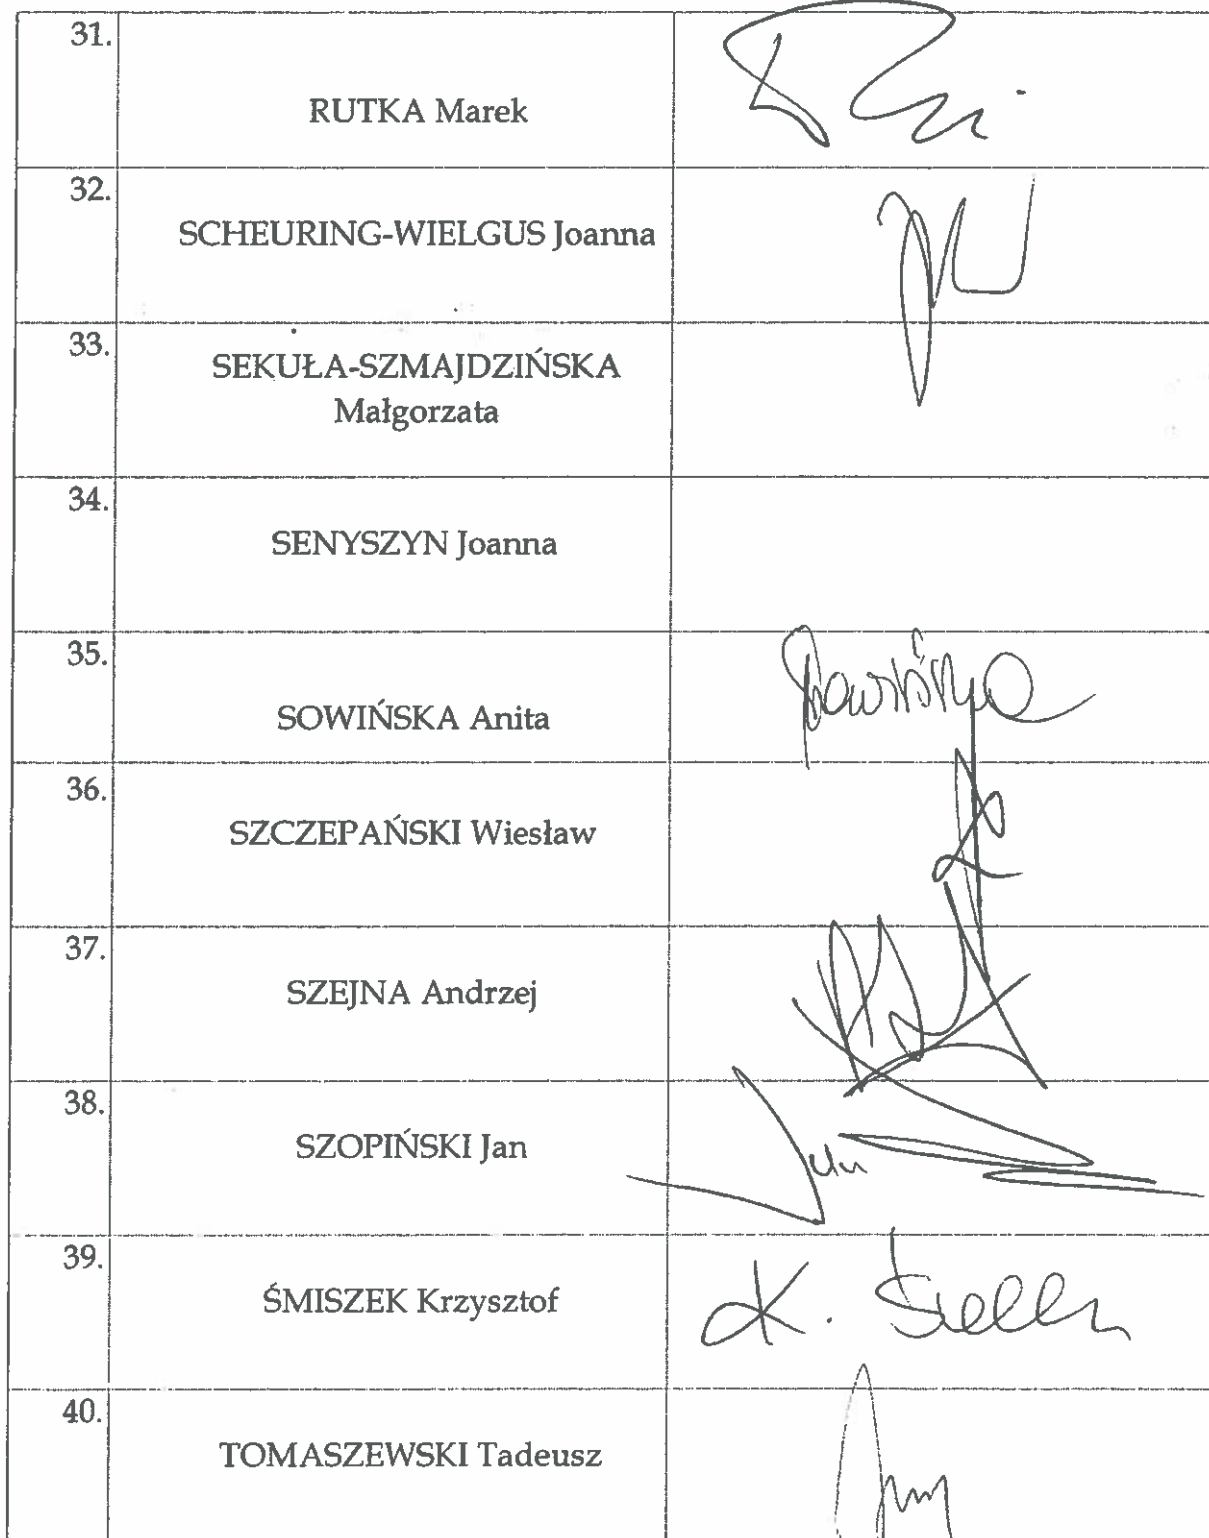 31.
RUTKA Marek
32.
SCHEURING-WIELGUS Joanna
33.
SEKUŁA-SZMAJDZIŃSKA
Małgorzata
34.
SENYSZYN Joanna
35.
SOWIŃSKA Anita
36.
SZCZEPAŃSKI Wiesław
37.
SZEJNA Andrzej
38.
SZOPIŃSKI Jan
39.
ŚMISZEK Krzysztof
K.
40.
TOMASZEWSKI Tadeusz